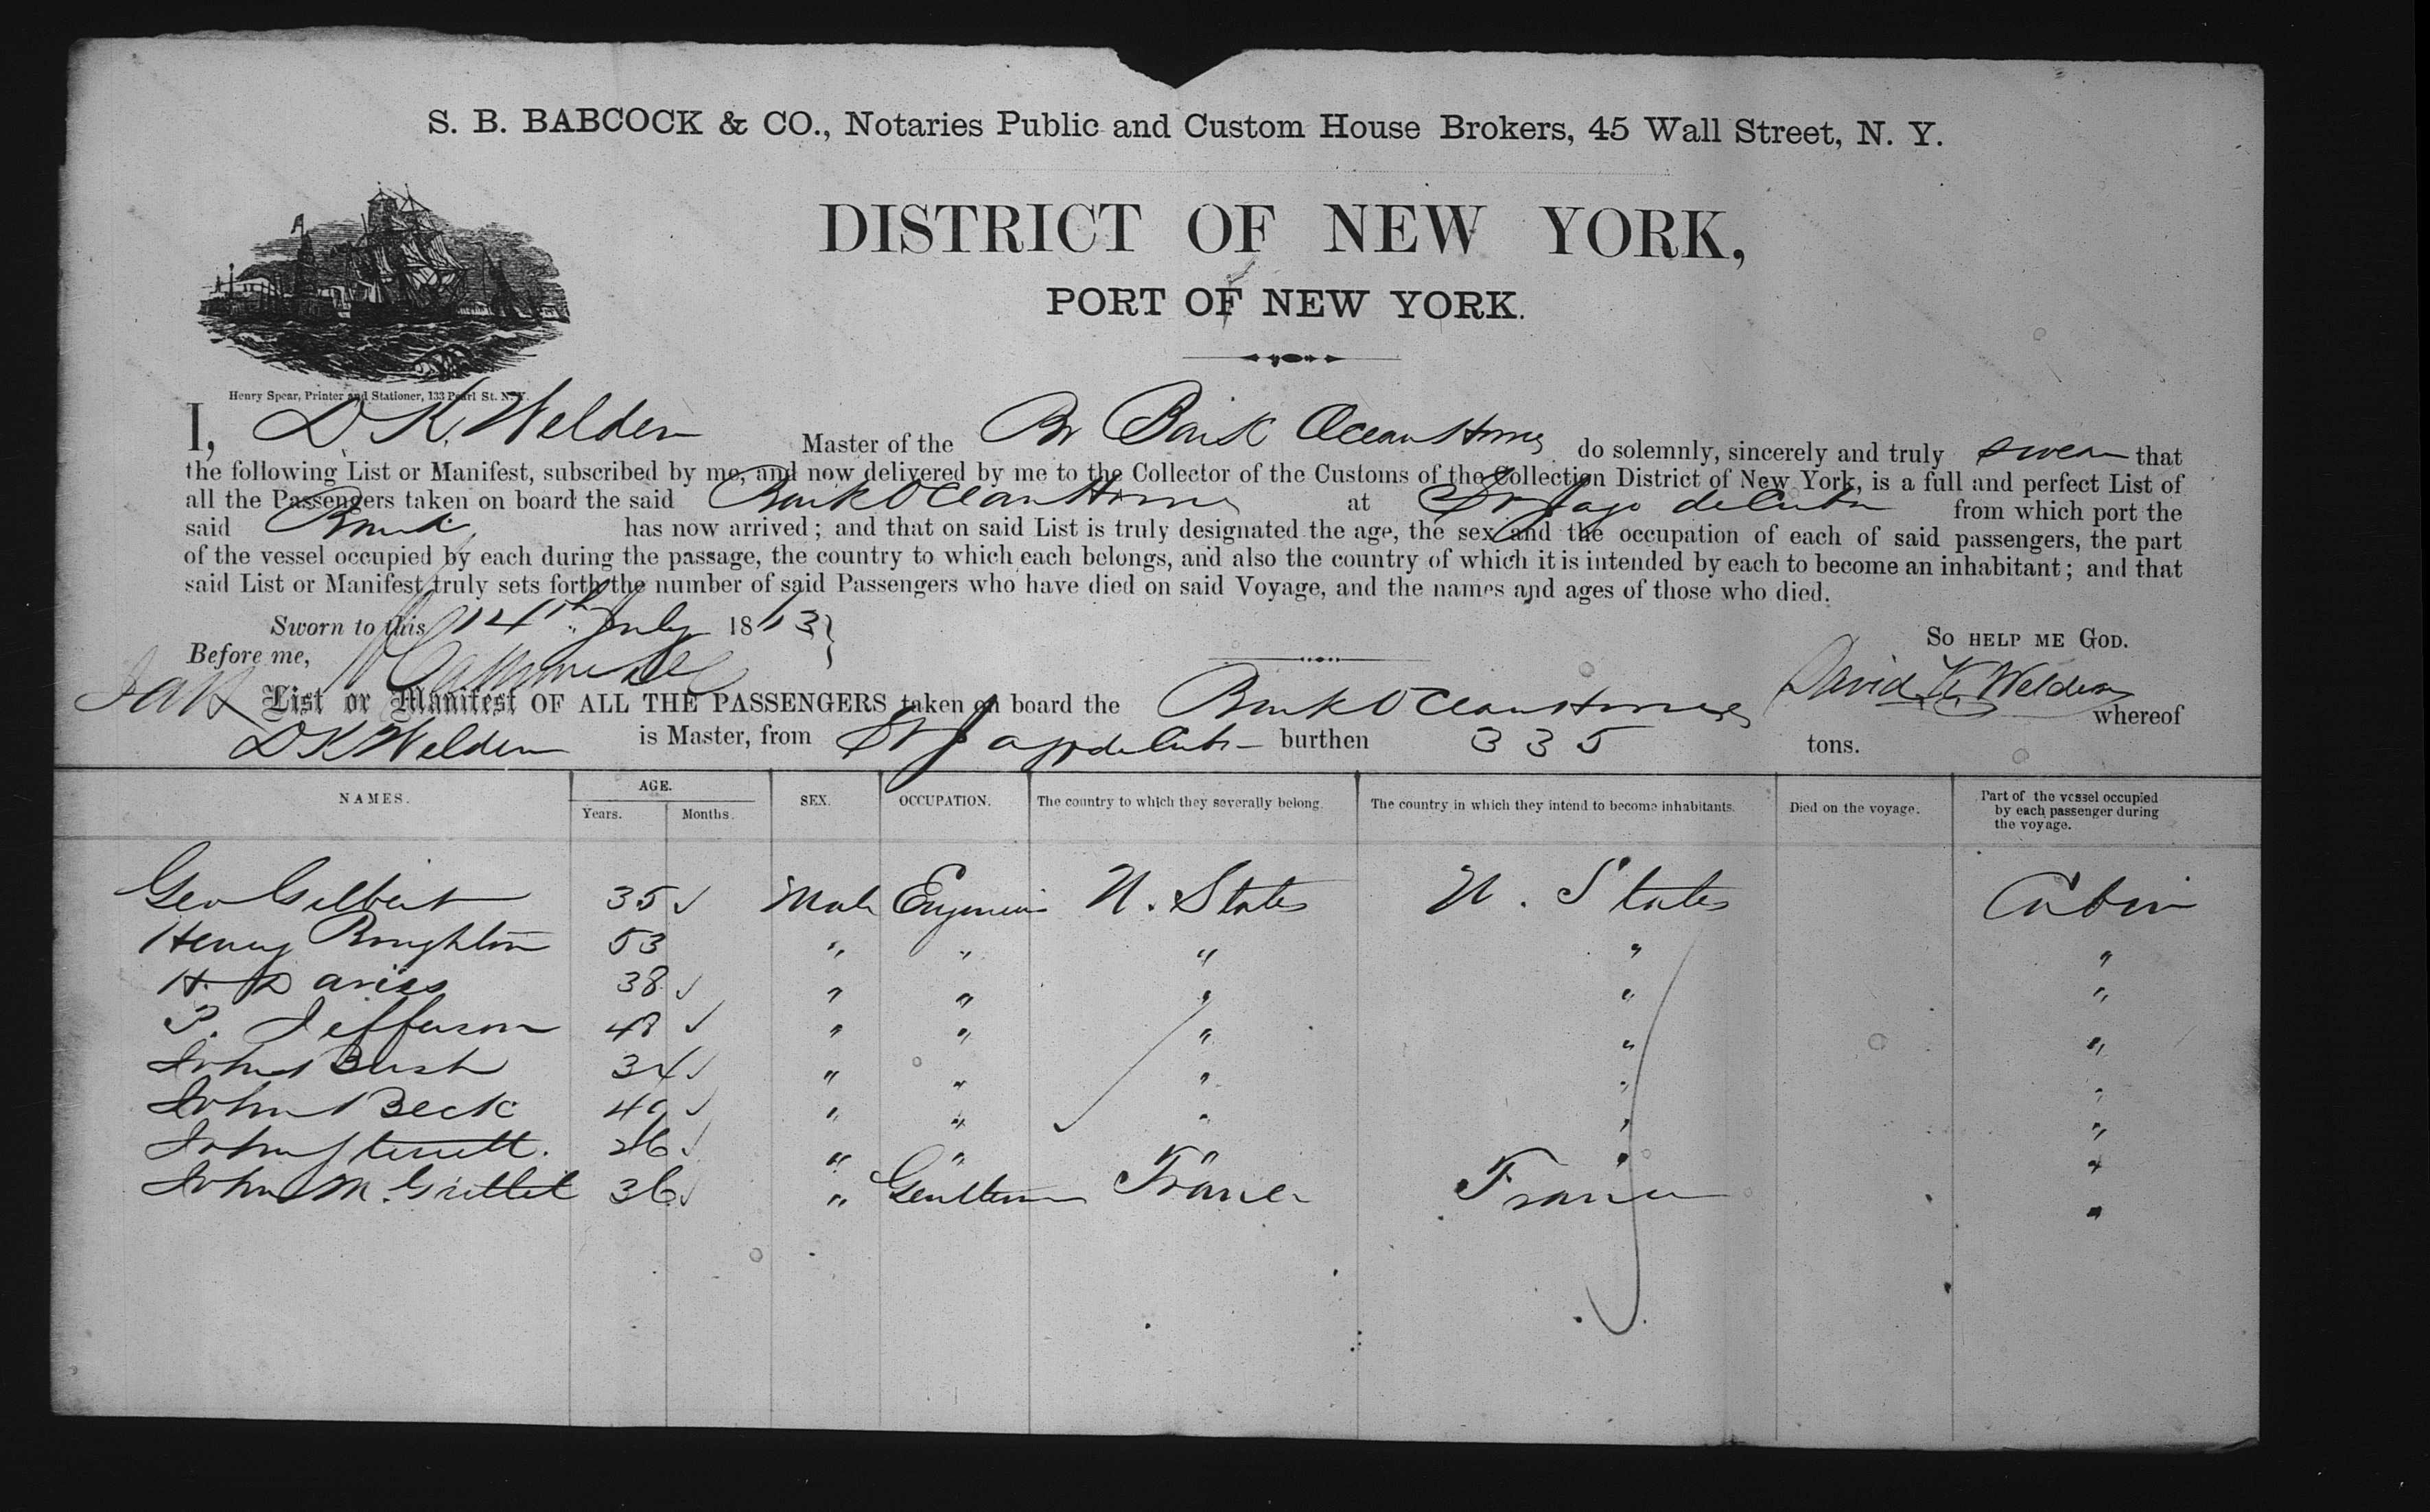 S. B. BABCOCK & CO., Notaries Public and Custom House Brokers, 45 Wall Street, N. Y.
DISTRICT OF NEW YORK,
PORT OF NEW YORK.
Henry Spear, Printer and Stationer, 133 Pearl St. N.Y.
I, D K. Welden Master of the Br Bark Ocean Home do solemnly, sincerely and truly swear that
the following List or Manifest, subscribed by me, and now delivered by me to the Collector of the Customs of the Collection District of New York, is a full and perfect List of
all the Passengers taken on board the said Bark Ocean Home at St Jago de Cuba from which port the
said Bark has now arrived; and that on said List is truly designated the age, the sex and the occupation of each of said passengers, the part
of the vessel occupied by each during the passage, the country to which each belongs, and also the country of which it is intended by each to become an inhabitant; and that
said List or Manifest truly sets forth the number of said Passengers who have died on said Voyage, and the names and ages of those who died.
Sworn to this 14th July 1863 }
SO HELP ME GOD.
Before me,
David K. Welden
List or Manifest OF ALL THE PASSENGERS taken on board the Bark Ocean Home whereof
D K Welden is Master, from St Jago de Cuba burthen 335 tons.
NAMES. AGE. Years. Months. SEX. OCCUPATION. The country to which they severally belong. The country in which they intend to become inhabitants. Died on the voyage. Part of the vessel occupied by each passenger during the voyage.
Geo Gilbert 35 Male Engineer U. States U. States Cabin
Henry Boughton 53 " " " " "
H. Davies 38 " " " " "
P. Jefferson 48 " " " " "
John Bush 34 " " " " "
John Beck 40 " " " " "
John 26 " " " " "
John M. 36 " Gentleman France France "